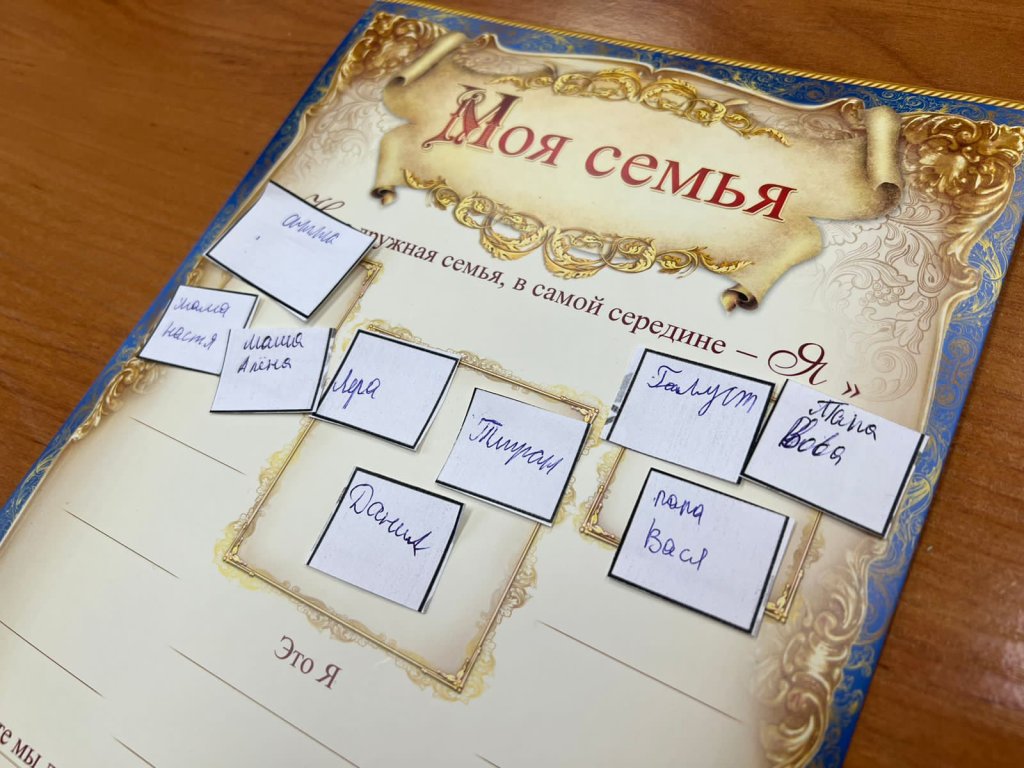 Моя семья
дружная семья, в самой середине – Я »
анна
мама
настя
мама
Алёна
Лера
Тигран
Данил
Галуст
Папа
Вова
папа
Вася
Это Я
мы